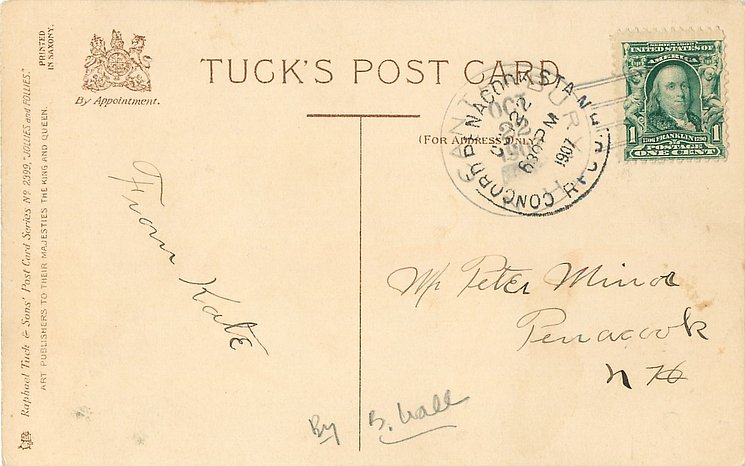 PRINTED
IN SAXONY.
Raphael Tuck & Sons' Post Card Series Nº 2399 "JOLLIES and FOLLIES."
ART PUBLISHERS TO THEIR MAJESTIES THE KING AND QUEEN.
By Appointment.
TUCK'S POST CARD
(FOR ADDRESS ONLY)
SERIES 1902
UNITED STATES OF
AMERICA
1 1
FRANKLIN
POSTAGE
ONE CENT
PENACOOK STA.
OCT
22
6 30 PM
1907
CONCORD
From Kate
Mr Peter Minor
Penacook
N H
By B. Hall